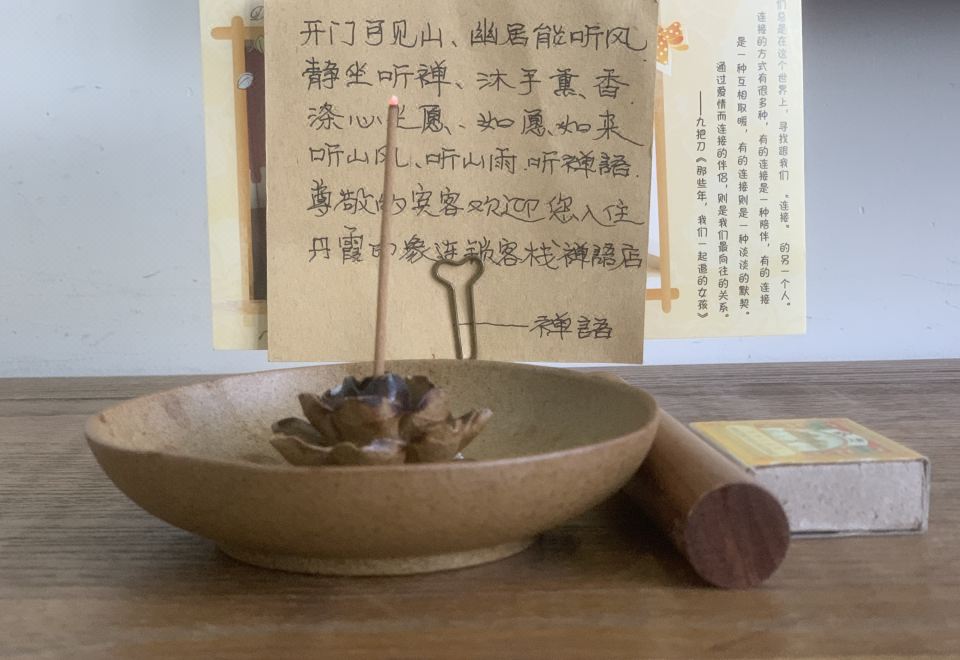 开门可见山、幽居能听风、
静坐听禅、沐手熏香
涤心坐愿、如愿如来
听山风、听山雨、听禅語.
尊敬的宾客欢迎您入住
丹霞印象连锁客栈禅語店
——禅語
们总是在这个世界上，寻找跟我们“连接”的另一个人。
连接的方式有很多种，有的连接是一种陪伴，有的连接
是一种互相取暖，有的连接则是一种淡淡的默契。
通过爱情而连接的伴侣，则是我们最向往的关系。
——九把刀《那些年，我们一起追的女孩》